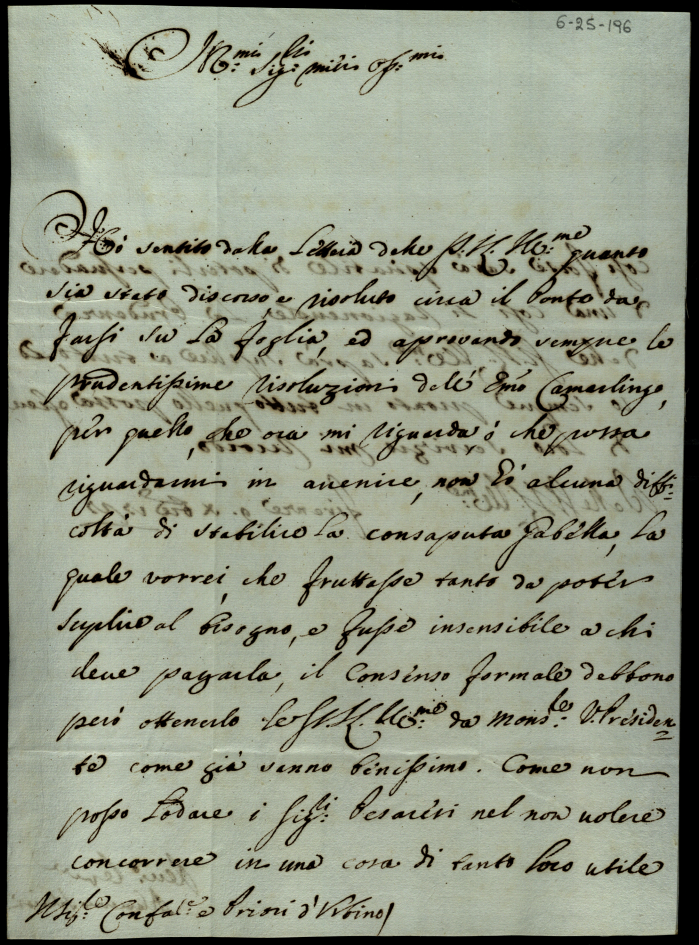 6-25-196
Ill:mi Sig:ri miei Oss:mi
Hò sentito dalla Lettera delle S.V. Ill:me quanto
sia stato discorso, e risoluto circa il Ponte da
farsi su La foglia, ed aprovando sempre le
prudentissime risoluzioni dell' Emo Camarlingo,
per quello, che ora mi riguarda ò che possa
riguardarmi in avenire, non hò alcuna diffi=
coltà di stabilire la consaputa Gabella, la
quale vorrei, che fruttasse tanto da poter
suplire al bisogno, e fusse insensibile a chi
deve pagarla, il Consenso formale debbono
però ottenerlo le S.V. Ill:me da Mons:re V. Presiden=
te come già sanno benissimo. Come non
posso Lodare i Sig:ri Pesaresi nel non volere
concorrere in una cosa di tanto loro utile
Sig:re Confal:re e Priori d'Urbino/